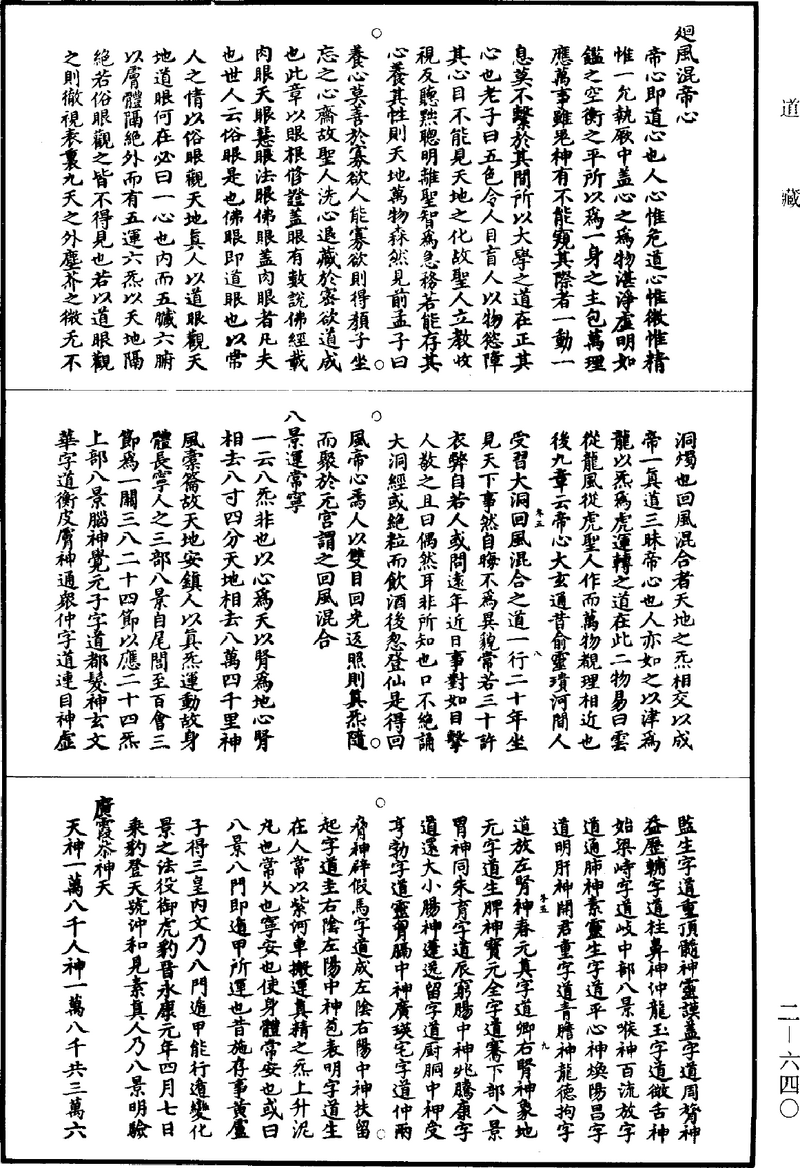 道藏
廻風混帝心
帝心即道心也人心惟危道心惟微惟精
惟一允執厥中盖心之爲物湛淨虛明如
鑑之空衡之平所以爲一身之主包萬理
應萬事雖鬼神有不能窺其際者一動一
息莫不繫於其間所以大學之道在正其
心也老子曰五色令人目盲人以物慾障
其心目不能見天地之化故聖人立教收
視反聽黜聰明離聖智爲急務若能存其
心養其性則天地萬物森然見前孟子曰
養心莫善於寡欲人能寡欲則得顏子坐
忘之心齋故聖人洗心退藏於密欲道成
也此章以眼根修證盖眼有數說佛經載
肉眼天眼慧眼法眼佛眼盖肉眼者凡夫
也世人云俗眼是也佛眼即道眼也以常
人之情以俗眼觀天地真人以道眼觀天
地道眼何在必曰一心也内而五臟六腑
以膚體隔絕外而有五運六炁以天地隔
絕若俗眼觀之皆不得見也若以道眼觀
之則徹視表裏九天之外塵芥之微无不
洞燭也回風混合者天地之炁相交以成
帝一真道三昧帝心也人亦如之以津爲
龍以炁爲虎運轉之道在此二物易曰雲
從龍風從虎聖人作而萬物覩理相近也
後九章云帝心大玄通昔俞靈璝河間人
受習大洞回風混合之道一行二十年坐
見天下事然自晦不爲異貌常若三十許
衣弊自若人或問遠年近日事對如目擊
人敬之且曰偶然耳非所知也口不絕誦
大洞經或絕粒而飲酒後忽登仙是得回
風帝心焉人以雙目回光返照則真炁隨
而聚於元宮謂之回風混合
八景運常寧
一云八炁非也以心爲天以腎爲地心腎
相去八寸四分天地相去八萬四千里神
風橐籥故天地安鎮人以真炁運動故身
體長寧人之三部八景自尾閭至百會三
節爲一關三八二十四節以應二十四炁
上部八景腦神覺元子字道都髮神玄文
華字道衡皮膚神通衆仲字道連目神虛
監生字道童頂髓神靈謨盖字道周膂神
益歷輔字道柱鼻神仲龍玉字道微舌神
始梁峙字道岐中部八景喉神百流放字
道通肺神素靈生字道平心神煥陽昌字
道明肝神開君童字道青膽神龍德拘字
道放左腎神春元真字道卿右腎神象地
元字道生脾神寶元全字道騫下部八景
胃神同來育字道辰窮腸中神兆騰康字
道還大小腸神蓬送留字道厨胴中神受
亨勃字道靈胃膈中神廣瑛宅字道仲兩
脅神辟假馬字道成左陰右陽中神扶留
起字道圭右陰左陽中神苞表明字道生
在人常以紫河車搬運真精之炁上升泥
丸也常久也寧安也使身體常安也或曰
八景八門即遁甲所運也昔施存事黄盧
子得三皇内文乃八門遁甲能行遁變化
景之法役御虎豹晉永康元年四月七日
乘豹登天號沖和見素真人乃八景明驗
廣霞泰神天
天神一萬八千人神一萬八千共三萬六
卷五
八
卷五
九
二—六四〇